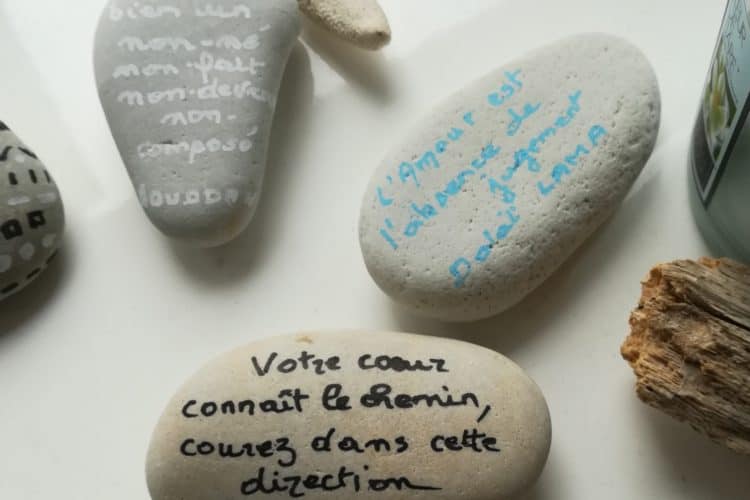 bien un
non-né
non-fait
non-devenu
non-
composé
BOUDDA
L'Amour est
l'absence de
jugement
Dalaï LAMA
Votre cœur
connaît le chemin,
courez dans cette
direction